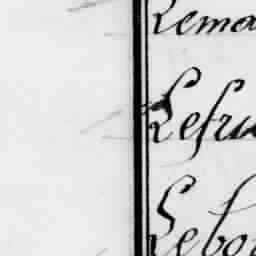 Lema
Lefru
Lebou